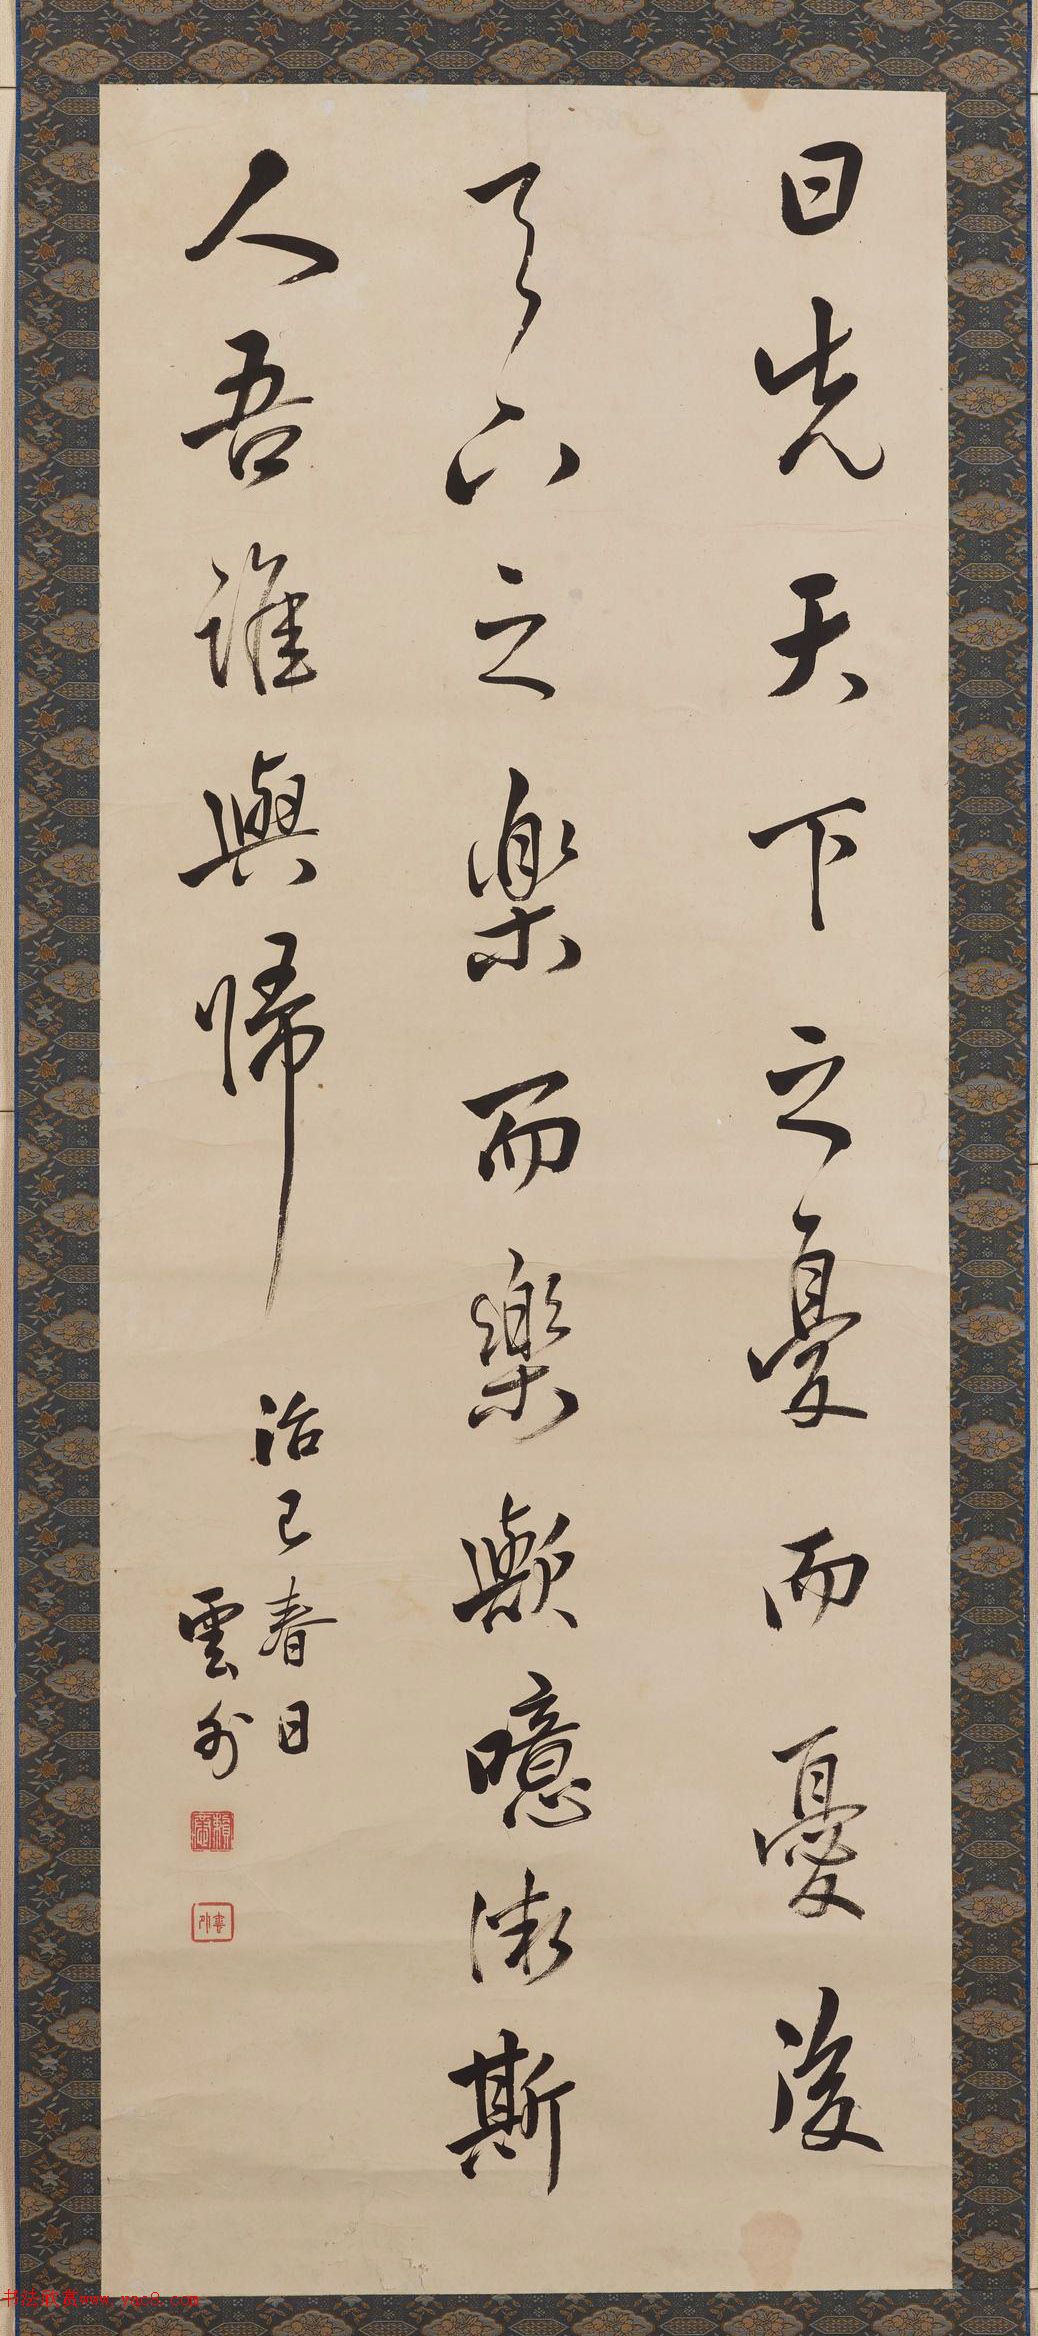 曰先天下之憂而憂後
天下之樂而樂歟噫微斯
人吾誰與歸
治己春日
雲外
书法欣赏www.yac8.com